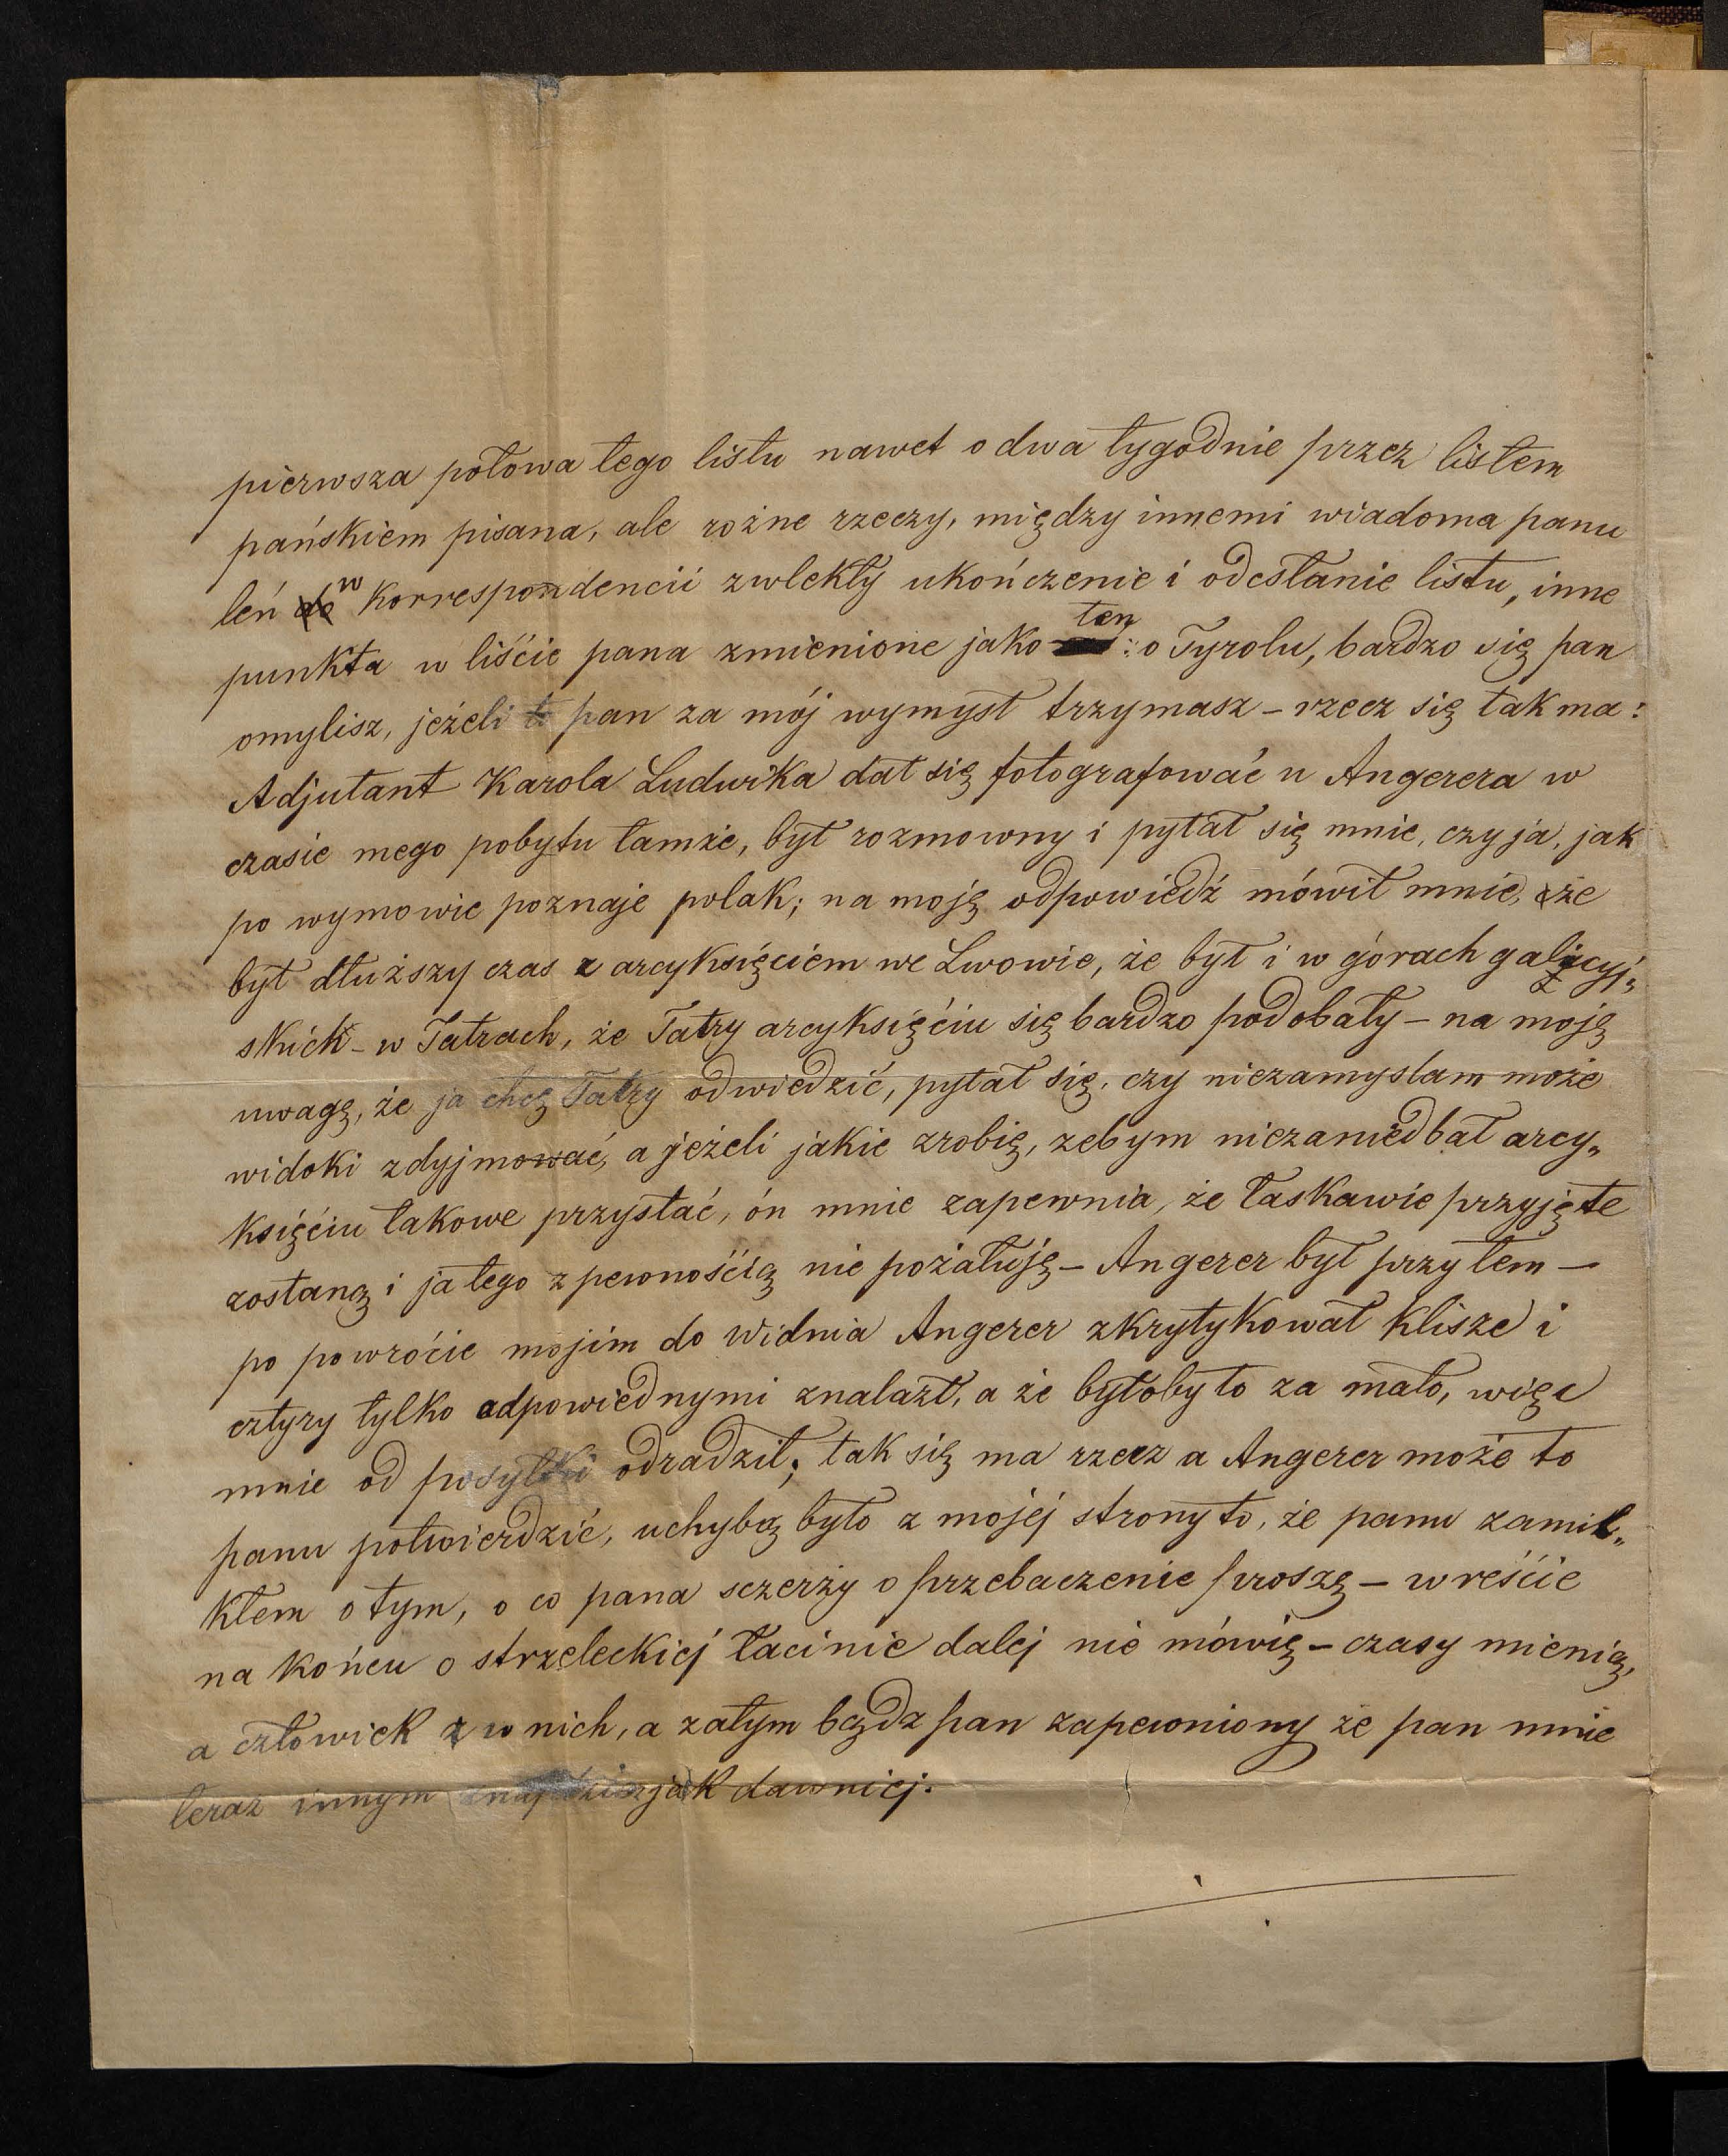 pierwsza połowa tego listu nawet o dwa tygodnie przez listem
pańskiem pisana, ale rożne rzeczy, między innemi wiadoma panu
leń w korrespondencii zwlekły ukończenie i odesłanie listu, inne
punkta w liście pana zmienione jako ten : o Tyrolu, bardzo się pan
omylisz, jeżeli to pan za mój wymysł trzymasz – rzecz się tak ma:
Adjutant Karola Ludwika dał się fotografować u Angerera w
czasie mego pobytu tamże, był rozmowny i pytał się mnie, czy ja, jak
po wymowie poznaje polak; na moję odpowiedź mówił mnie, że
był dłuższy czas z arcyksięciem we Lwowie, że był i w górach galicyj„
skich – w Tatrach, że Tatry arcyksięćiu się bardzo podobały – na moję
uwagę, że ja chcę Tatry odwiedzić, pytał się, czy niezamyslam może
widoki zdyjmować, a jeżeli jakie zrobię, zebym niezaniedbał arcy„
księćiu takowe przysłać, ón mnie zapewnia, że łaskawie przyjęte
zostaną i ja tego z pewnośćią nie pożałuję – Angerer był przy tem –
po powróćie mojim do Widnia Angerer zkrytykował klisze i
cztyry tylko odpowiednymi znalazł, a że byłoby to za mało, więc
mnie od posyłki odradził; tak się ma rzecz a Angerer może to
panu potwierdzić, uchybą było z mojej strony to, że panu zamil„
kłem o tym, o co pana sczerży o przebaczenie proszę – wreśćie
na końcu o strzeleckiej łacinie dalej nie mówię – czasy mienią,
a człowiek z w nich, a zatym bądz pan zapewniony że pan mnie
teraz innym znajdzisz jak dawniej.